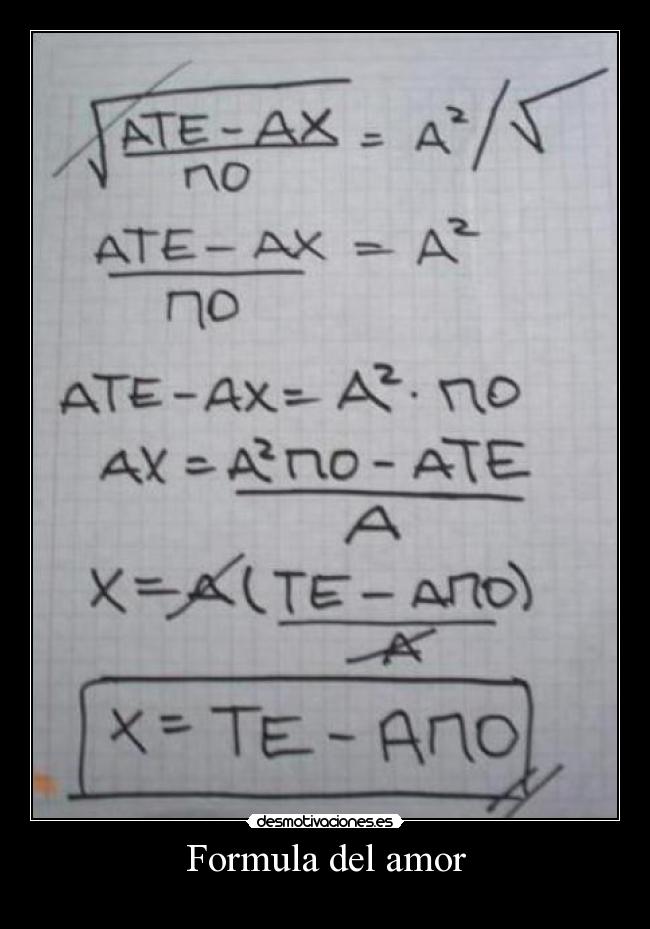 √(ATE - AX / ΠO) = A² / √
ATE - AX / ΠO = A²
ATE - AX = A² · ΠO
AX = A²ΠO - ATE / A
X = A(TE - AΠO) / A
X = TE - AΠO
desmotivaciones.es
Formula del amor